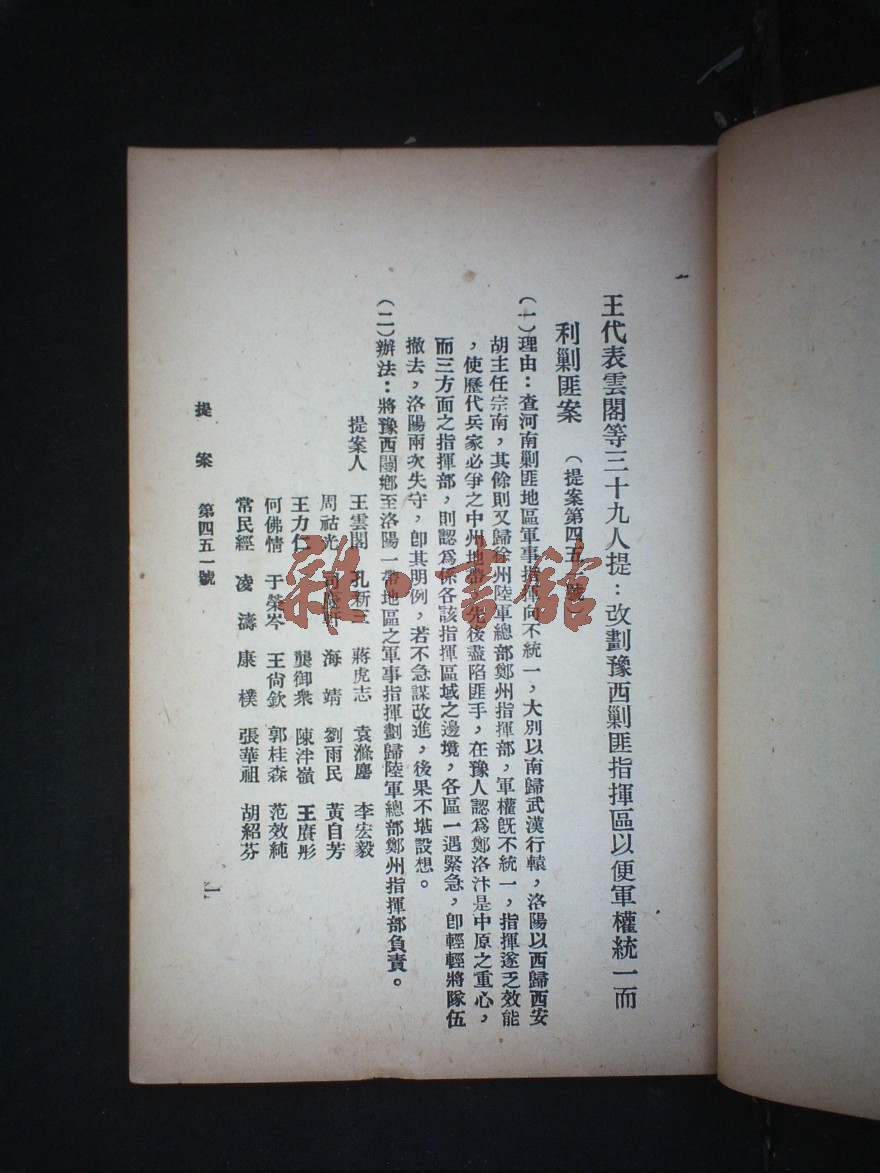 王代表雲閣等三十九人提：改劃豫西剿匪指揮區以便軍權統一而
利剿匪案（提案第四五一號）
（一）理由：查河南剿匪地區軍事指揮向不統一，大別以南歸武漢行轅，洛陽以西歸西安
胡主任宗南，其餘則又歸徐州陸軍總部鄭州指揮部，軍權旣不統一，指揮遂乏效能
，使歷代兵家必爭之中州地帶，先後盡陷匪手，在豫人認爲鄭洛汴是中原之重心，
而三方面之指揮部，則認爲係各該指揮區域之邊境，各區一遇緊急，卽輕輕將隊伍
撤去，洛陽兩次失守，卽其明例，若不急謀改進，後果不堪設想。
（二）辦法：將豫西閿鄉至洛陽一帶地區之軍事指揮劃歸陸軍總部鄭州指揮部負責。
提案人 王雲閣 孔新三 蔣虎志 袁滌塵 李宏毅
周祜光 海靖 劉雨民 黃自芳
王力仁 龔御衆 陳泮嶺 王賡彤
何佛情 于榮岑 王尙欽 郭桂森 范效純
常民經 凌濤 康樸 張華祖 胡紹芬
提案 第四五一號
一
雜·書館